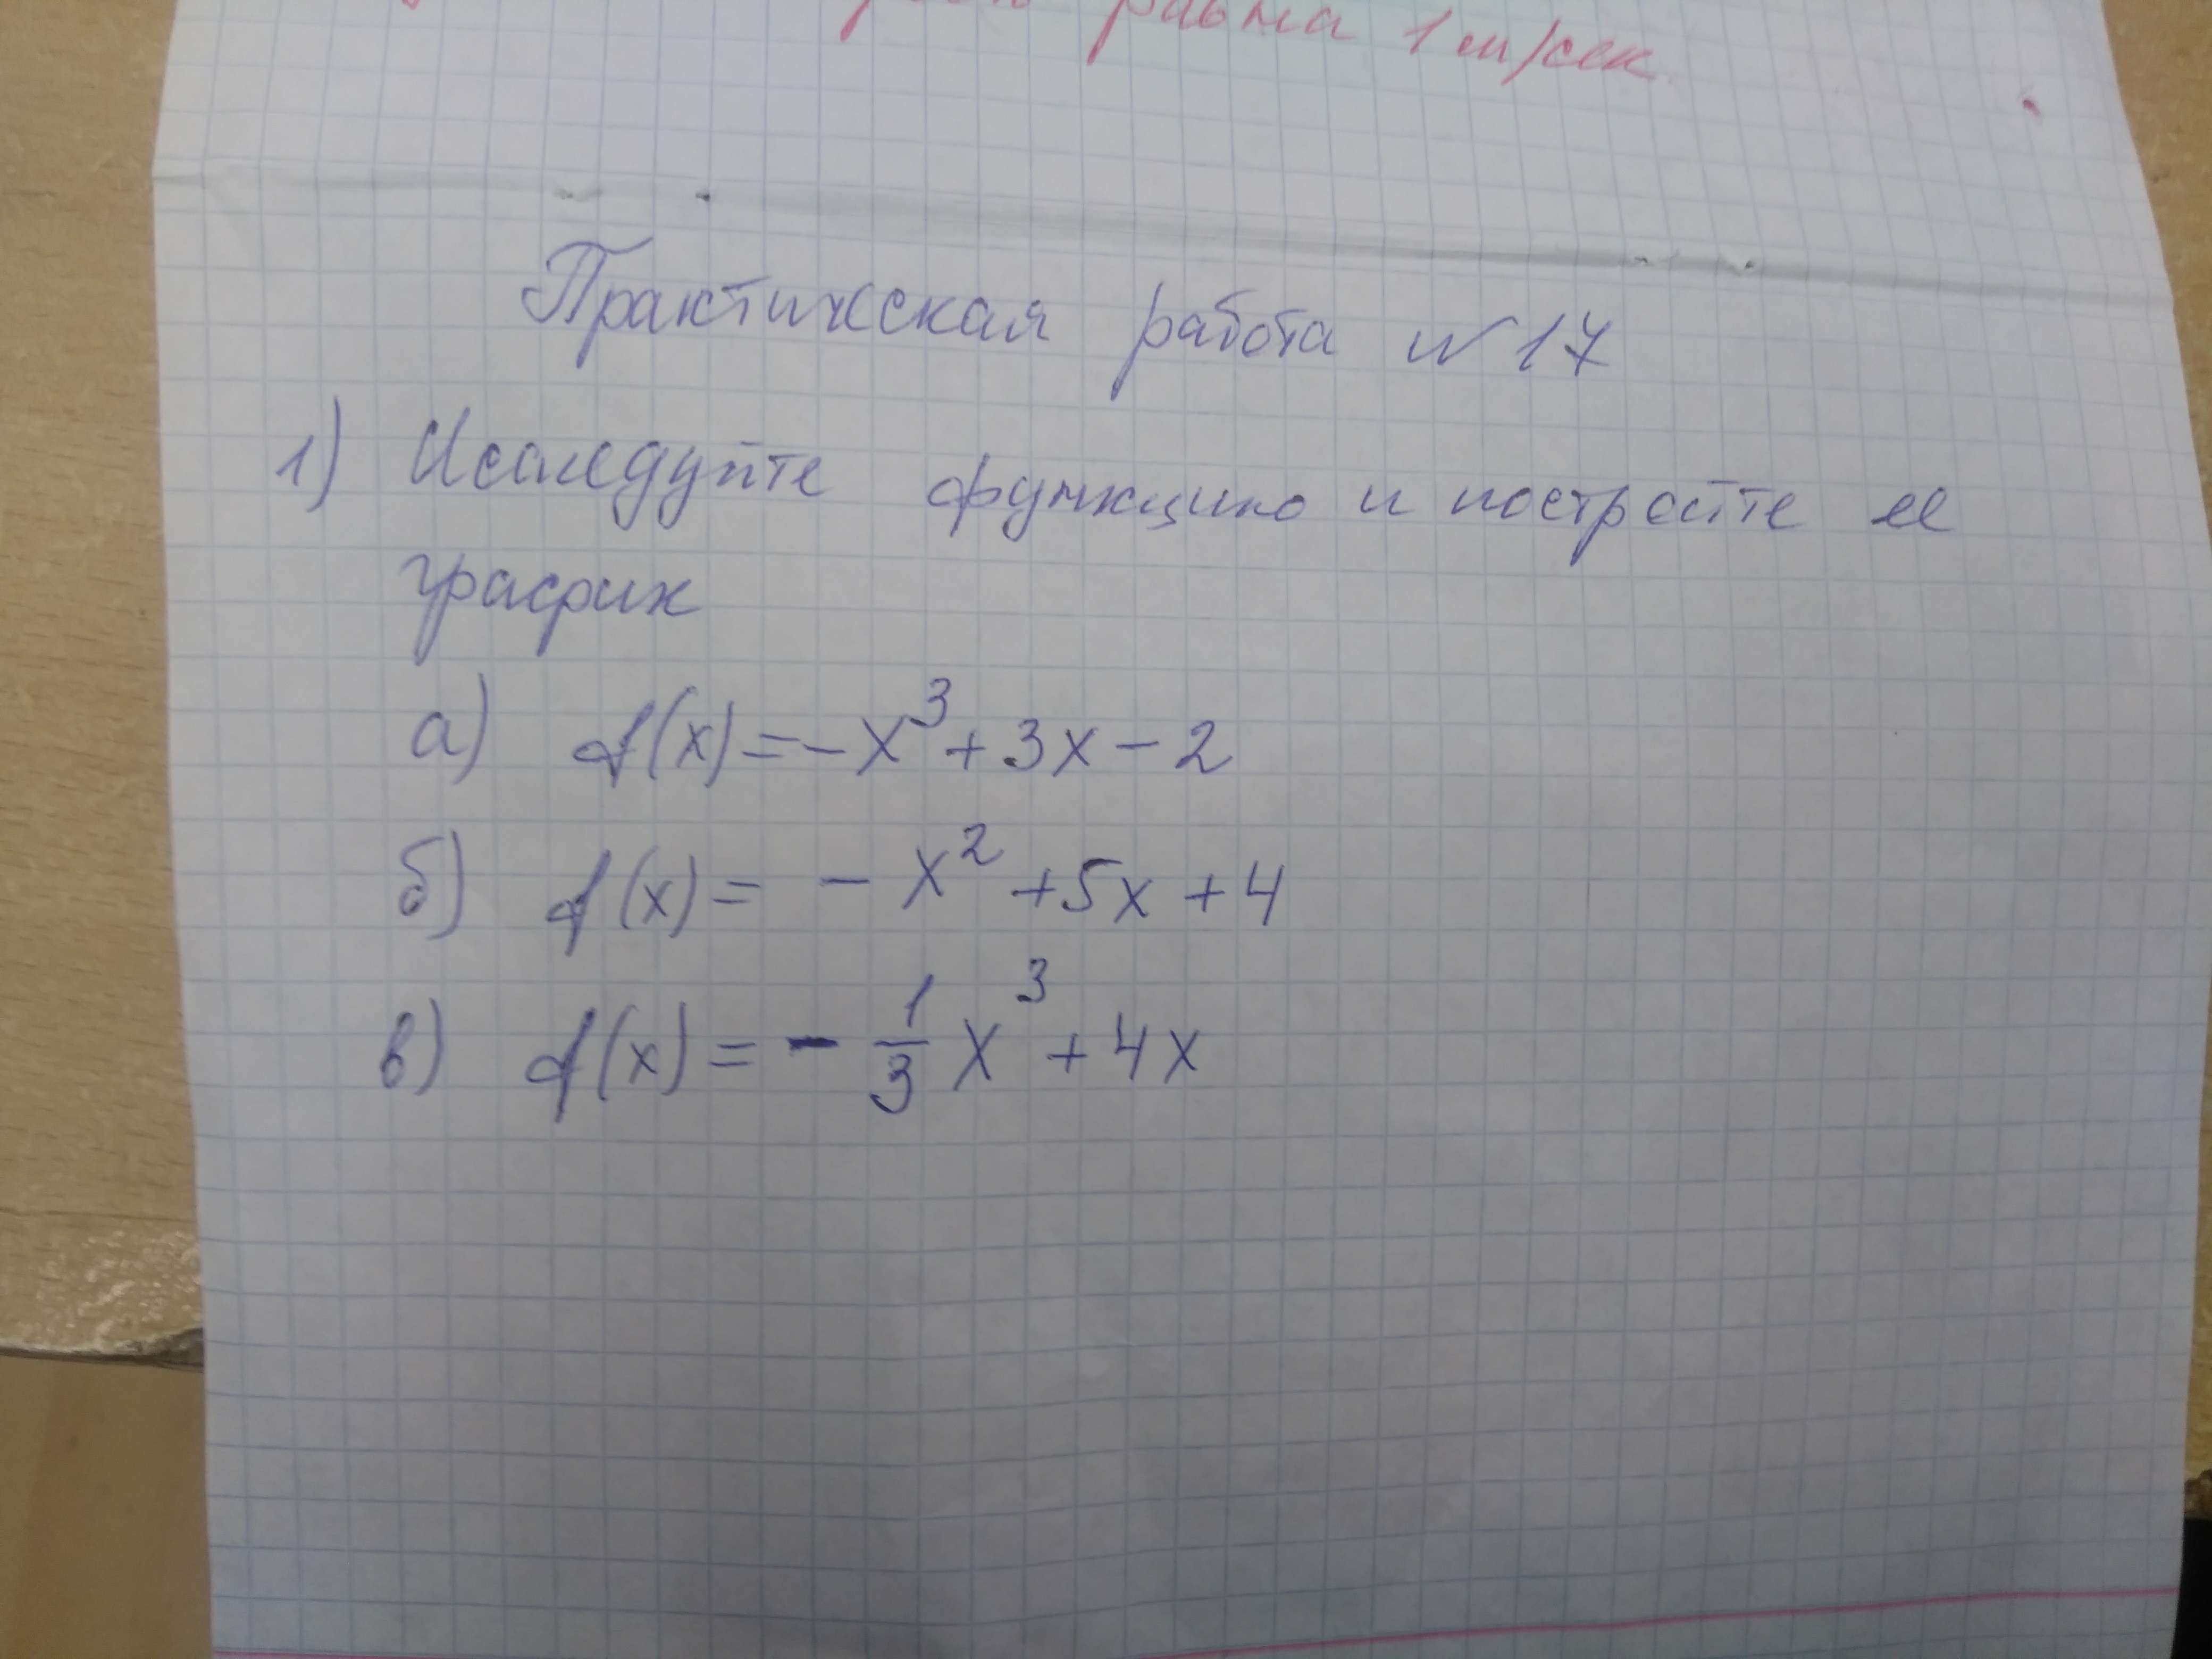 равна 1 м/сек
Практическая работа №17
1) Исследуйте функцию и постройте ее
график
а) f(x)=-x³+3x-2
б) f(x)= -x²+5x+4
в) f(x)= -1/3 x³+4x